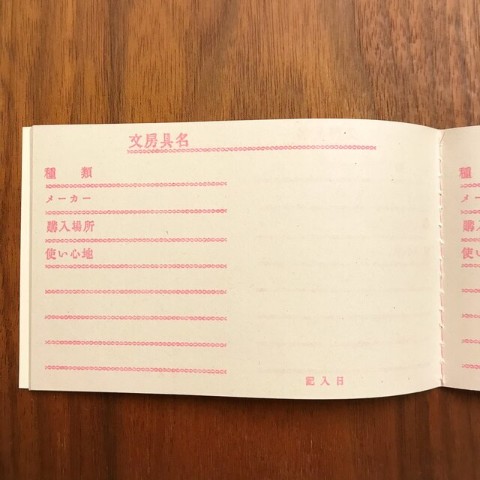 文房具名
種 類
メーカー
購入場所
使い心地
記入日
種
メ
購入
使い